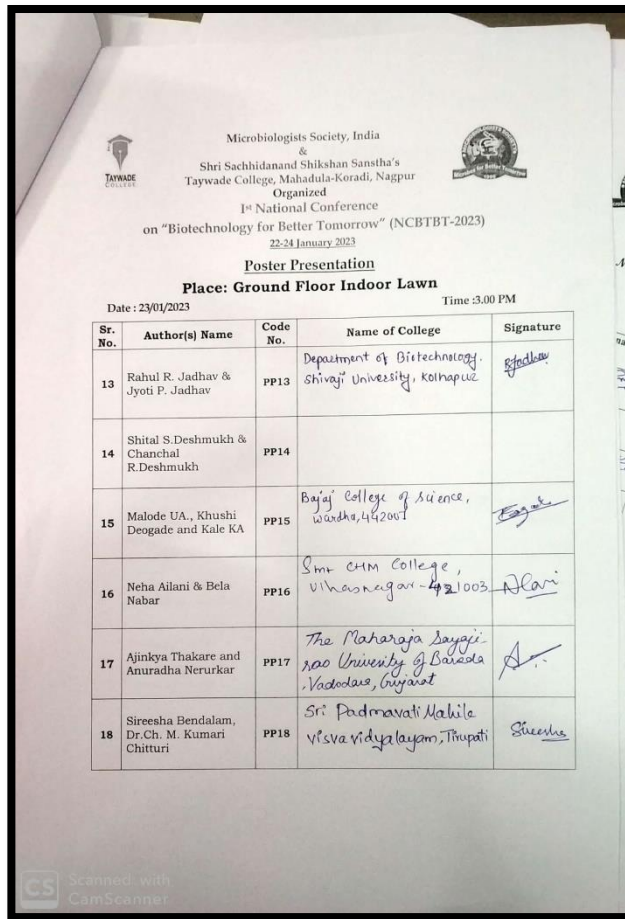 Microbiologists Society, India
&
Shri Sachhidanand Shikshan Sanstha's
Taywade College, Mahadula-Koradi, Nagpur
Organized
Ist National Conference
on "Biotechnology for Better Tomorrow" (NCBTBT-2023)
22-24 January 2023
TAYWADE
COLLEGE
Poster Presentation
Place: Ground Floor Indoor Lawn
Date : 23/01/2023 Time :3.00 PM
Sr. No. Author(s) Name Code No. Name of College Signature
13 Rahul R. Jadhav & Jyoti P. Jadhav PP13 Department of Biotechnology. Shivaji University, Kolhapur RJadhav
14 Shital S.Deshmukh & Chanchal R.Deshmukh PP14
15 Malode UA., Khushi Deogade and Kale KA PP15 Bajaj College of Science, Wardha,442001
16 Neha Ailani & Bela Nabar PP16 Smt CHM College, Ulhasnagar-421003
17 Ajinkya Thakare and Anuradha Nerurkar PP17 The Maharaja Sayaji rao Univesity of Baroda ,Vadodara, Gujarat
18 Sireesha Bendalam, Dr.Ch. M. Kumari Chitturi PP18 Sri Padmavati Mahila visvavidyalayam, Tirupati Sireesha
CS Scanned with
CamScanner